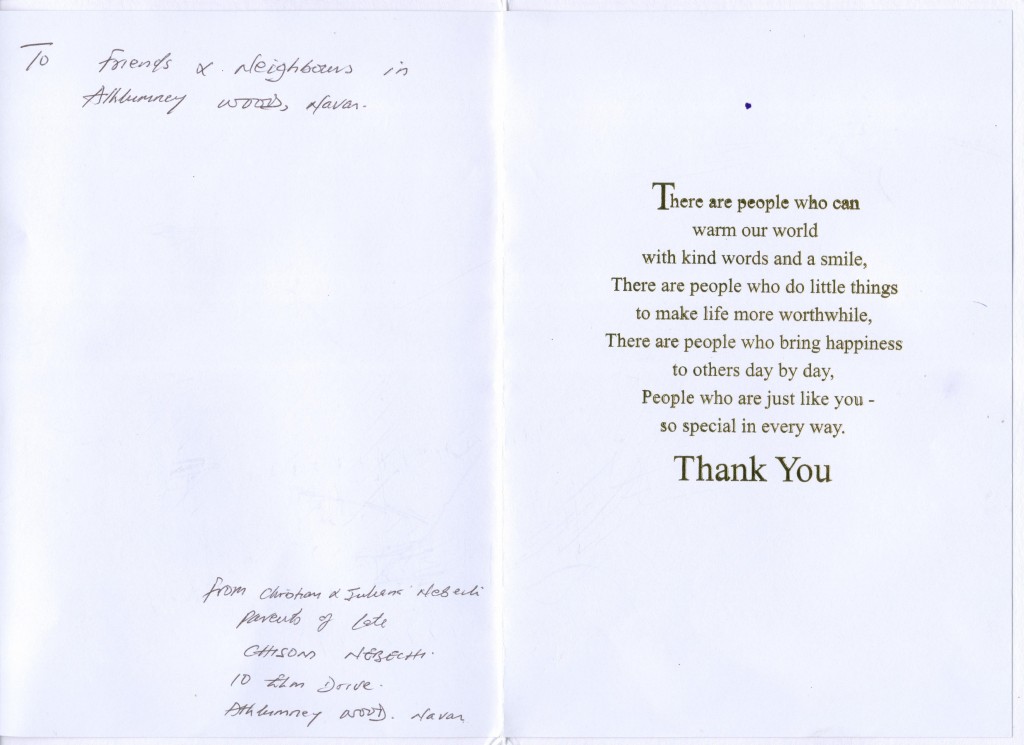 To Friends & Neighbours in
Athlumney WOOD, Navan.
from Christian & Juliana Nebechi
parents of late
CHISOM NEBECHI.
10 Elm Drive.
Athlumney WOOD. Navan
There are people who can
warm our world
with kind words and a smile,
There are people who do little things
to make life more worthwhile,
There are people who bring happiness
to others day by day,
People who are just like you -
so special in every way.
Thank You